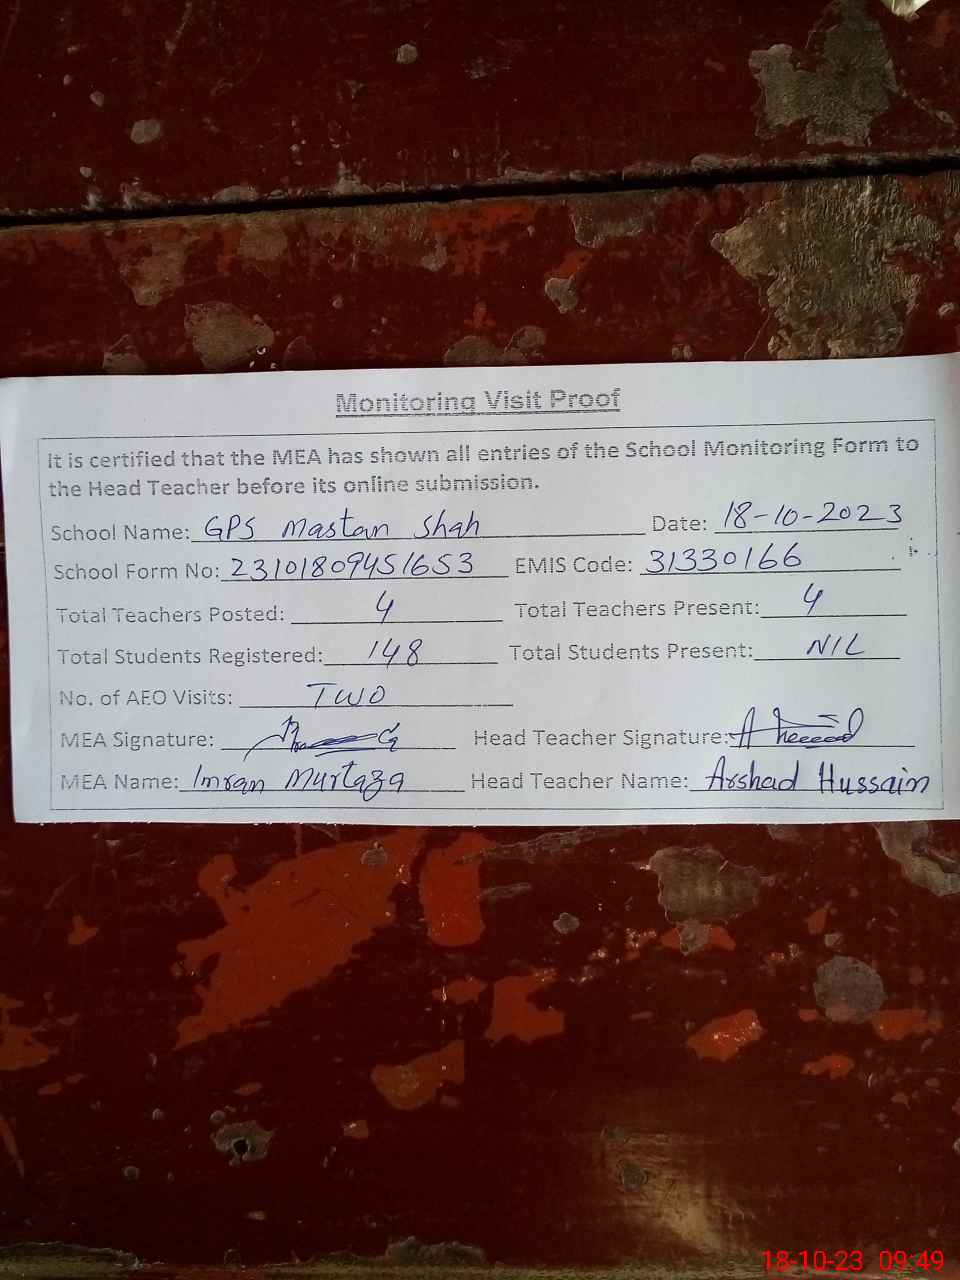 Monitoring Visit Proof
It is certified that the MEA has shown all entries of the School Monitoring Form to
the Head Teacher before its online submission.
School Name: GPS Mastan Shah Date: 18-10-2023
School Form No: 23101809451653 EMIS Code: 31330166
Total Teachers Posted: 4 Total Teachers Present: 4
Total Students Registered: 148 Total Students Present: NIL
No. of AEO Visits: TWO
MEA Signature: Head Teacher Signature:
MEA Name: Imran Murtaza Head Teacher Name: Arshad Hussain
18-10-23 09:49